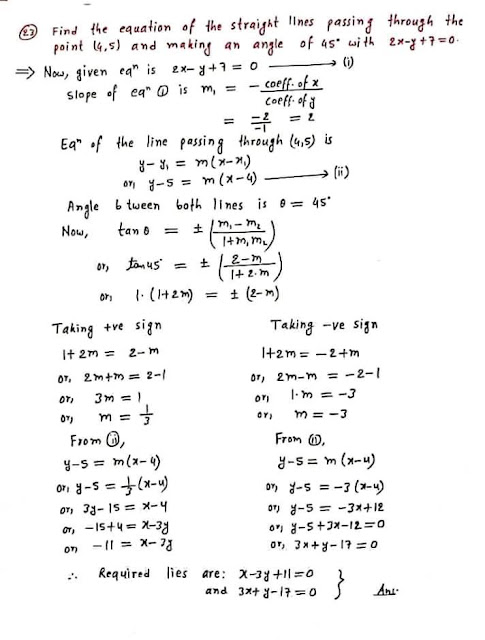 (23) Find the equation of the straight lines passing through the
point (4,5) and making an angle of 45° with 2x-y+7=0.
⇒ Now, given eqⁿ is 2x-y+7=0 ⟶ (i)
slope of eqⁿ ① is m₁ = - coeff. of x / coeff. of y
= -2/-1 = 2
Eqⁿ of the line passing through (4,5) is
y-y₁ = m(x-x₁)
or, y-5 = m(x-4) ⟶ (ii)
Angle b tween both lines is θ = 45°
Now, tan θ = ± (m₁-m₂ / 1+m₁m₂)
or, tan45° = ± (2-m / 1+2·m)
or, 1·(1+2m) = ± (2-m)
Taking +ve sign
1+2m = 2-m
or, 2m+m = 2-1
or, 3m = 1
or, m = 1/3
From ⑪,
y-5 = m(x-4)
or, y-5 = 1/3 (x-4)
or, 3y-15 = x-4
or, -15+4 = x-3y
or, -11 = x-3y
Taking -ve sign
1+2m = -2+m
or, 2m-m = -2-1
or, 1·m = -3
or, m = -3
From ⑪,
y-5 = m(x-4)
or, y-5 = -3(x-4)
or, y-5 = -3x+12
or, y-5+3x-12=0
or, 3x+y-17=0
∴ Required lies are: x-3y+11=0
and 3x+y-17=0 } Ans.